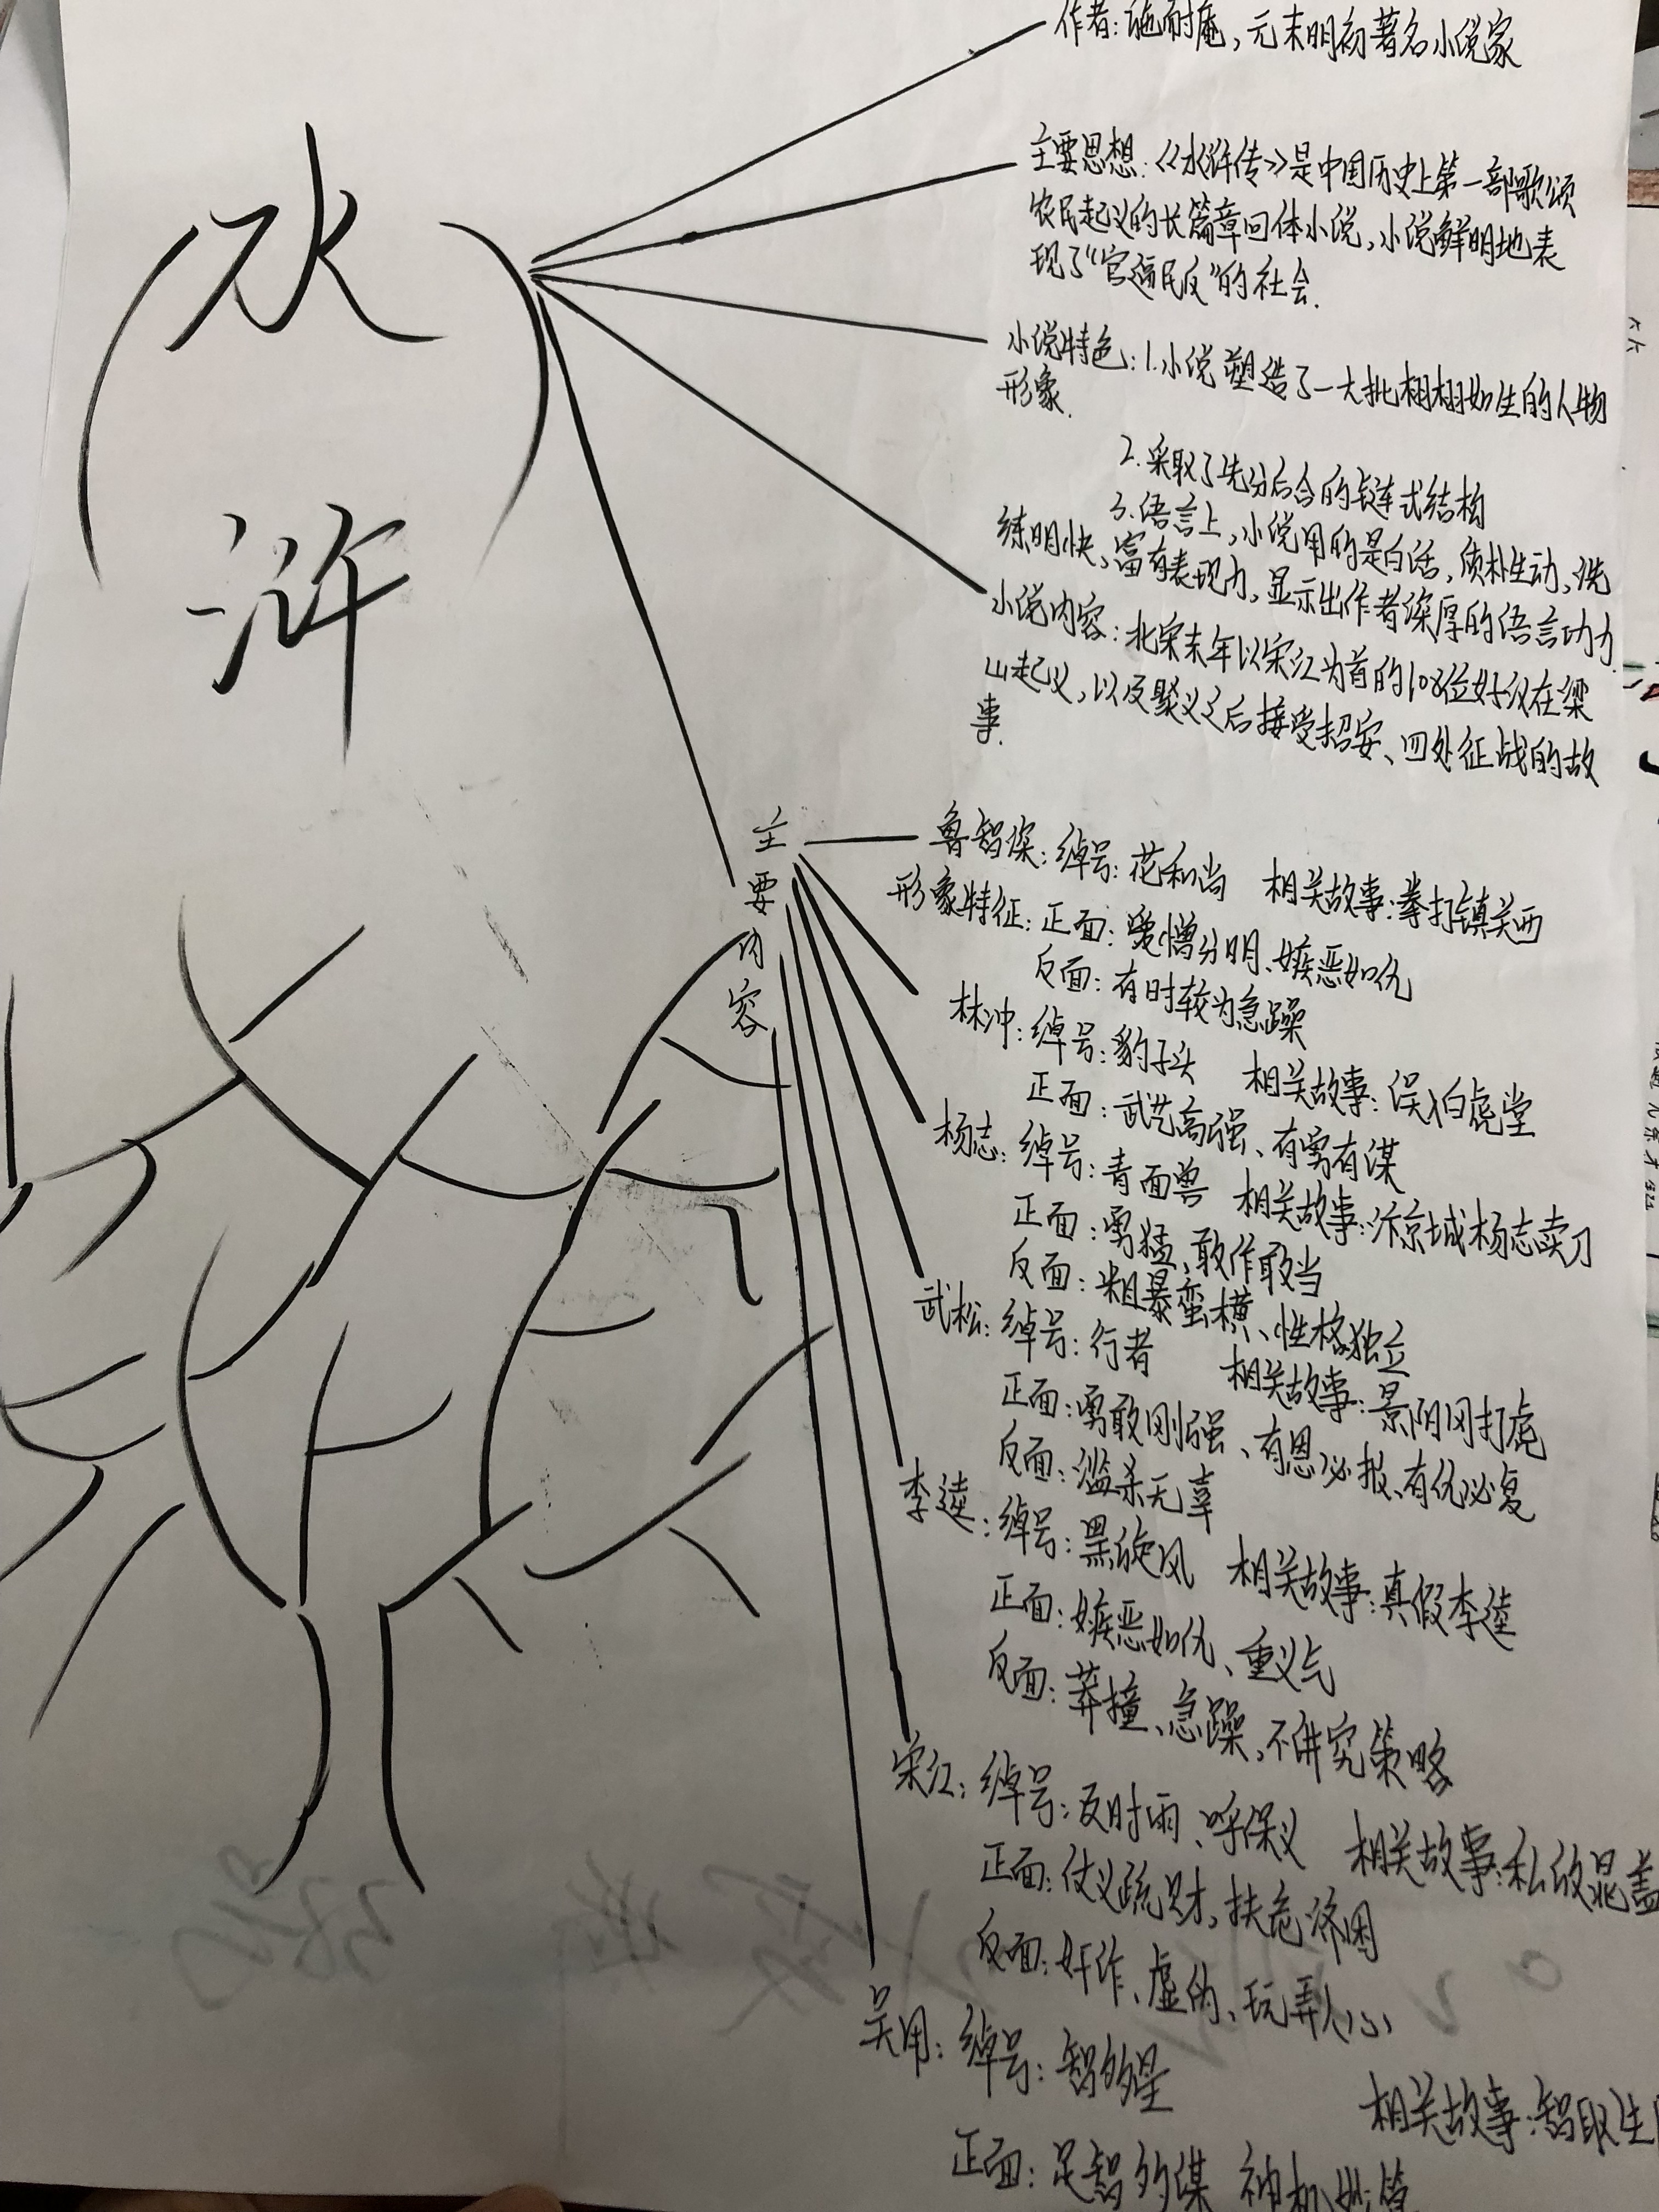 水
浒
作者：施耐庵，元末明初著名小说家
主要思想：《水浒传》是中国历史上第一部歌颂
农民起义的长篇章回体小说，小说鲜明地表
现了“官逼民反”的社会.
小说特色：1.小说塑造了一大批栩栩如生的人物
形象.
2.采取了先分后合的链车式结构
3.语言上，小说用的是白话，质朴生动，洗
练明快、富有表现力，显示出作者深厚的语言功力.
小说内容：北宋末年以宋江为首的108位好汉在梁
山起义，以及聚义之后接受招安、四处征战的故
事.
主要内容
鲁智深：绰号：花和尚 相关故事：拳打镇关西
形象特征：正面：爱憎分明、嫉恶如仇
反面：有时较为急躁
林冲：绰号：豹子头 相关故事：误入白虎堂
正面：武艺高强、有勇有谋
杨志：绰号：青面兽 相关故事：汴京城杨志卖刀
正面：勇猛，敢作敢当
反面：粗暴蛮横、性格独立
武松：绰号：行者 相关故事：景阳冈打虎
正面：勇敢刚强、有恩必报、有仇必复
反面：滥杀无辜
李逵：绰号：黑旋风 相关故事：真假李逵
正面：嫉恶如仇、重义气
反面：莽撞、急躁，不讲究策略
宋江：绰号：及时雨、呼保义 相关故事：私放晁盖
正面：仗义疏财，扶危济困
反面：奸诈、虚伪、玩弄人心
吴用：绰号：智多星
相关故事：智取生
正面：足智多谋 神机妙算